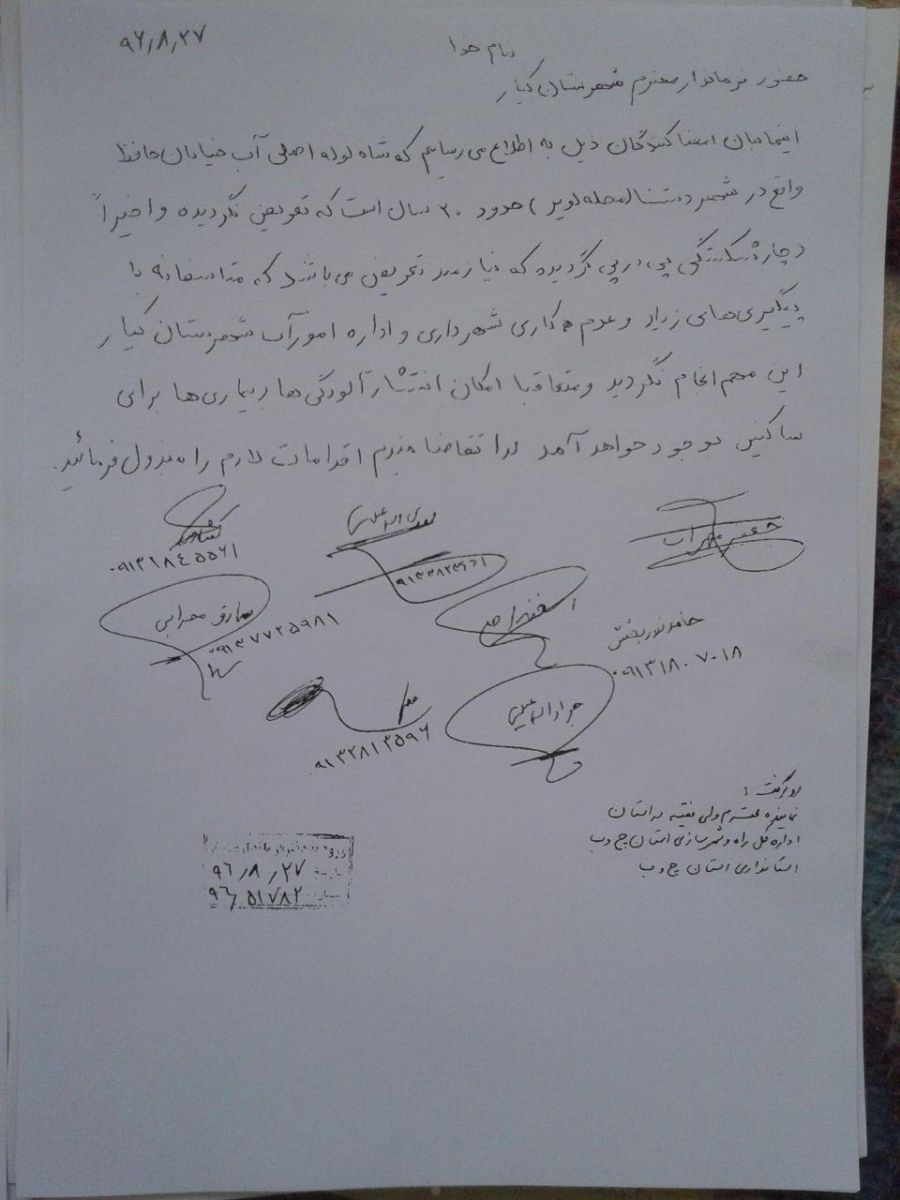 ۹۶/۸/۲۷
بنام خدا
حضور فرماندار محترم شهرستان کیار
اینجانبان امضا کنندگان ذیل به اطلاع می رسانیم که شاه لوله اصلی آب خیابان حافظ
واقع در شهر دستنا (محله لوپر) حدود ۲۰ سال است که تعویض نگردیده و اخیراً
دچار شکستگی پی در پی گردیده که نیازمند تعویض می باشد که متاسفانه با
پیگیری های زیاد و عدم همکاری شهرداری و اداره امور آب شهرستان کیار
این مهم انجام نگردید و متعاقبا امکان انتشار آلودگی ها و بیماری ها برای
ساکنین بوجود خواهد آمد لذا تقاضامندیم اقدامات لازم را مبذول فرمائید.
۰۹۱۳۱۸۴۵۵۶۱
صادق محرابی
۰۹۱۳۷۷۲۵۹۸۱
حامد نوربخش
۰۹۱۳۱۸۰۷۰۱۸
۰۹۱۳۲۸۱۳۵۹۶
رونوشت :
نماینده محترم ولی فقیه در استان
اداره کل راه و شهرسازی استان چ و ب
استانداری استان چ و ب
۹۶/۸/۲۷
۹۶/۵۱۷۸۲